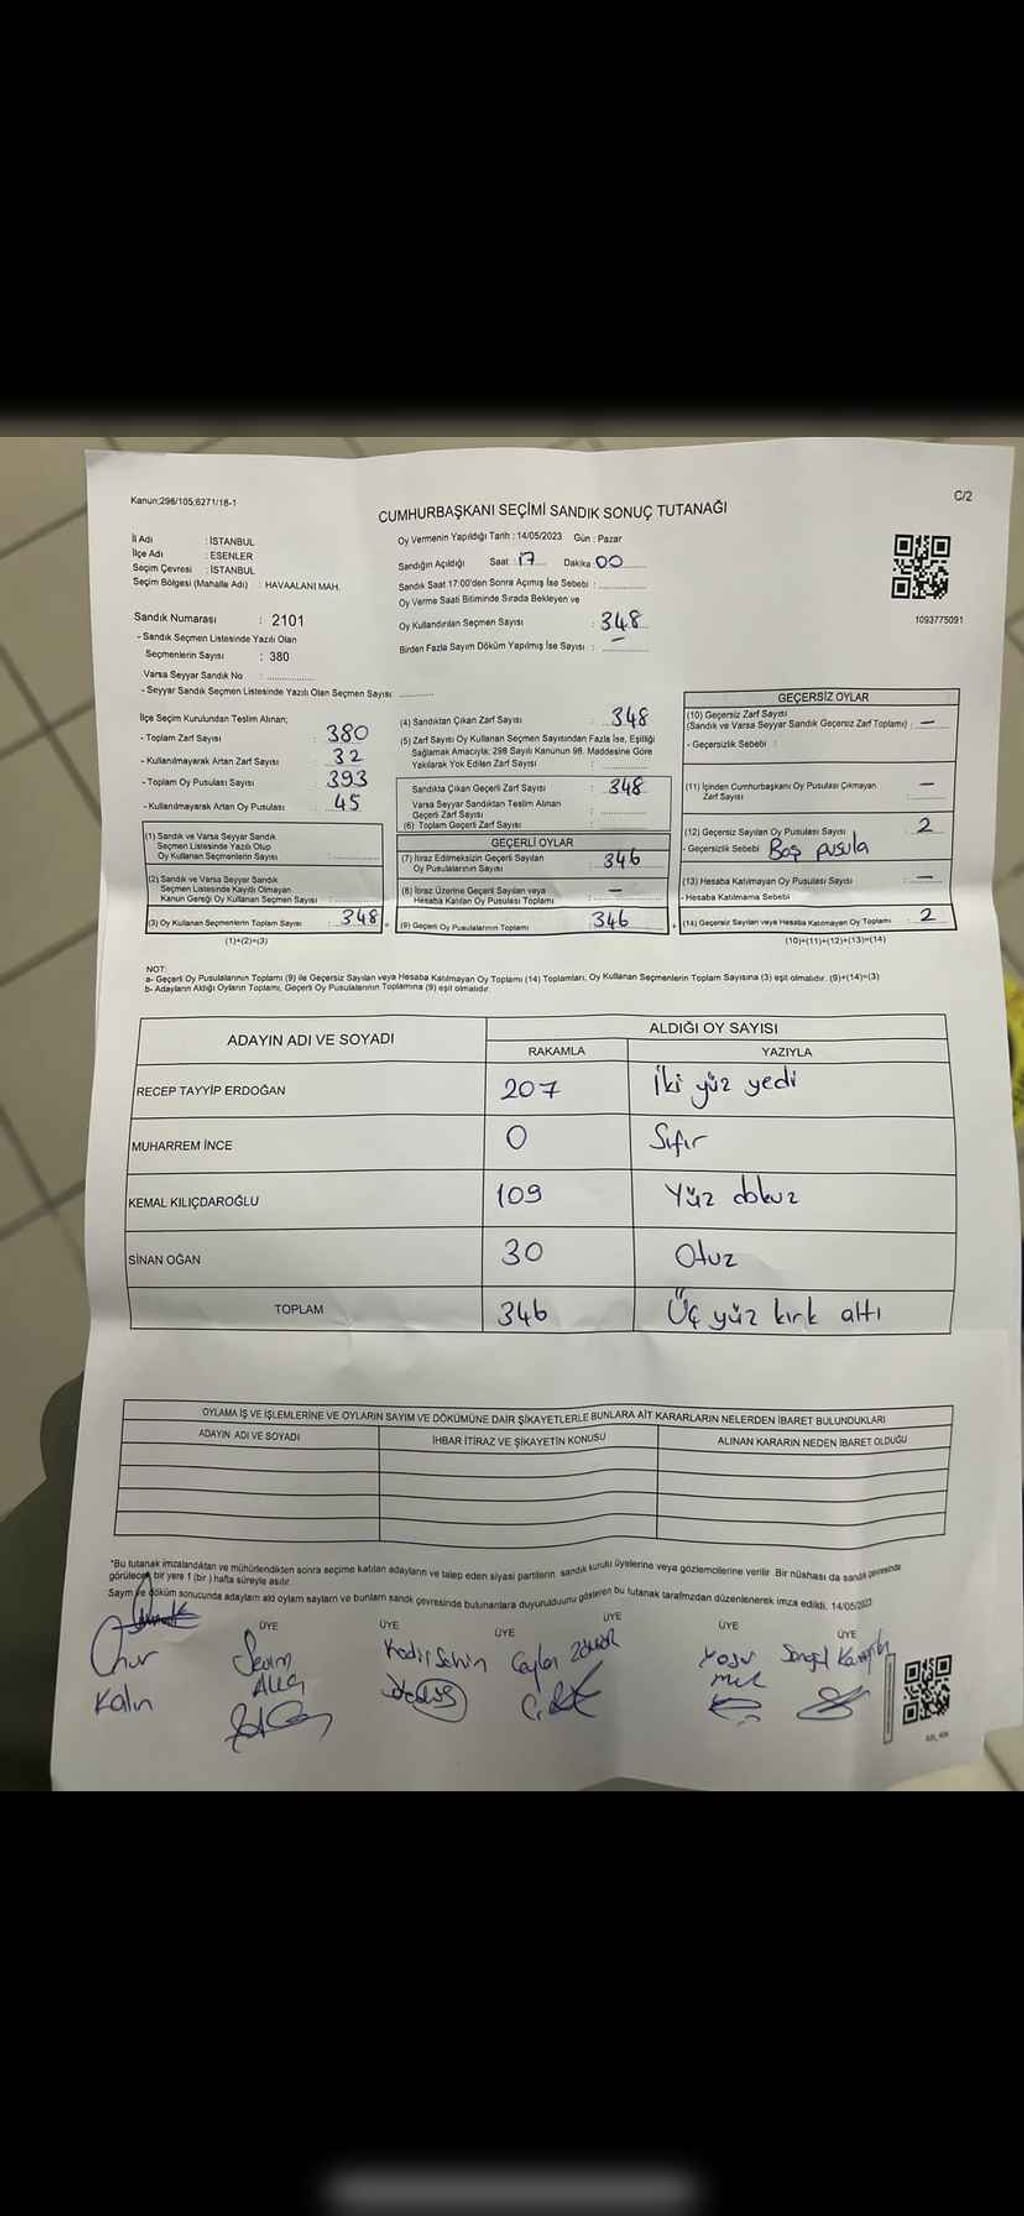 Kanun:298/105;6271/18-1
C/2
CUMHURBAŞKANI SEÇİMİ SANDIK SONUÇ TUTANAĞI
İl Adı : İSTANBUL
İlçe Adı : ESENLER
Seçim Çevresi : İSTANBUL
Seçim Bölgesi (Mahalle Adı) : HAVAALANI MAH.
Oy Vermenin Yapıldığı Tarih : 14/05/2023 Gün : Pazar
Sandığın Açıldığı Saat 17 Dakika 00
Sandık Saat 17:00'den Sonra Açımış İse Sebebi :
Oy Verme Saati Bitiminde Sırada Bekleyen ve
Oy Kullandırılan Seçmen Sayısı : 348
Birden Fazla Sayım Döküm Yapılmış İse Sayısı :
1093775091
Sandık Numarası : 2101
- Sandık Seçmen Listesinde Yazılı Olan
Seçmenlerin Sayısı : 380
Varsa Seyyar Sandık No :
- Seyyar Sandık Seçmen Listesinde Yazılı Olan Seçmen Sayısı
İlçe Seçim Kurulundan Teslim Alınan;
- Toplam Zarf Sayısı : 380
- Kullanılmayarak Artan Zarf Sayısı : 32
- Toplam Oy Pusulası Sayısı : 393
- Kullanılmayarak Artan Oy Pusulası : 45
(1) Sandık ve Varsa Seyyar Sandık
Seçmen Listesinde Yazılı Olup
Oy Kullanan Seçmenlerin Sayısı :
(2) Sandık ve Varsa Seyyar Sandık
Seçmen Listesinde Kayıtlı Olmayan
Kanun Gereği Oy Kullanan Seçmen Sayısı :
(3) Oy Kullanan Seçmenlerin Toplam Sayısı : 348
(1)+(2)=(3)
(4) Sandıktan Çıkan Zarf Sayısı : 348
(5) Zarf Sayısı Oy Kullanan Seçmen Sayısından Fazla İse, Eşitliği
Sağlamak Amacıyla; 298 Sayılı Kanunun 98. Maddesine Göre
Yakılarak Yok Edilen Zarf Sayısı :
Sandıkta Çıkan Geçerli Zarf Sayısı : 348
Varsa Seyyar Sandıktan Teslim Alınan
Geçerli Zarf Sayısı :
(6) Toplam Geçerli Zarf Sayısı :
GEÇERLİ OYLAR
(7) İtiraz Edilmeksizin Geçerli Sayılan
Oy Pusulalarının Sayısı : 346
(8) İtiraz Üzerine Geçerli Sayılan veya
Hesaba Katılan Oy Pusulası Toplamı : —
(9) Geçerli Oy Pusulalarının Toplamı : 346
GEÇERSİZ OYLAR
(10) Geçersiz Zarf Sayısı
(Sandık ve Varsa Seyyar Sandık Geçersiz Zarf Toplamı) : —
- Geçersizlik Sebebi :
(11) İçinden Cumhurbaşkanı Oy Pusulası Çıkmayan
Zarf Sayısı : —
(12) Geçersiz Sayılan Oy Pusulası Sayısı : 2
- Geçersizlik Sebebi Boş pusula
(13) Hesaba Katılmayan Oy Pusulası Sayısı : —
- Hesaba Katılmama Sebebi
(14) Geçersiz Sayılan veya Hesaba Katılmayan Oy Toplamı : 2
(10)+(11)+(12)+(13)=(14)
NOT:
a- Geçerli Oy Pusulalarının Toplamı (9) ile Geçersiz Sayılan veya Hesaba Katılmayan Oy Toplamı (14) Toplamları, Oy Kullanan Seçmenlerin Toplam Sayısına (3) eşit olmalıdır. (9)+(14)=(3)
b- Adayların Aldığı Oyların Toplamı, Geçerli Oy Pusulalarının Toplamına (9) eşit olmalıdır.
ADAYIN ADI VE SOYADI
ALDIĞI OY SAYISI
RAKAMLA YAZIYLA
RECEP TAYYİP ERDOĞAN 207 İki yüz yedi
MUHARREM İNCE 0 Sıfır
KEMAL KILIÇDAROĞLU 109 Yüz dokuz
SİNAN OĞAN 30 Otuz
TOPLAM 346 Üç yüz kırk altı
OYLAMA İŞ VE İŞLEMLERİNE VE OYLARIN SAYIM VE DÖKÜMÜNE DAİR ŞİKAYETLERLE BUNLARA AİT KARARLARIN NELERDEN İBARET BULUNDUKLARI
ADAYIN ADI VE SOYADI İHBAR İTİRAZ VE ŞİKAYETİN KONUSU ALINAN KARARIN NEDEN İBARET OLDUĞU
*Bu tutanak imzalandıktan ve mühürlendikten sonra seçime katılan adayların ve talep eden siyasi partilerin sandık kurulu üyelerine veya gözlemcilerine verilir. Bir nüshası da sandık çevresinde
görülecek bir yere 1 (bir) hafta süreyle asılır.
Sayım ve döküm sonucunda adayların aldı oyların sayıların ve bunların sandık çevresinde bulunanlara duyurulduunu gösteren bu tutanak tarafımızdan düzenlenerek imza edildi. 14/05/2023
ÜYE ÜYE ÜYE ÜYE ÜYE ÜYE
Onur Kalın
Sevim
Kadir Şahin
Ceylan